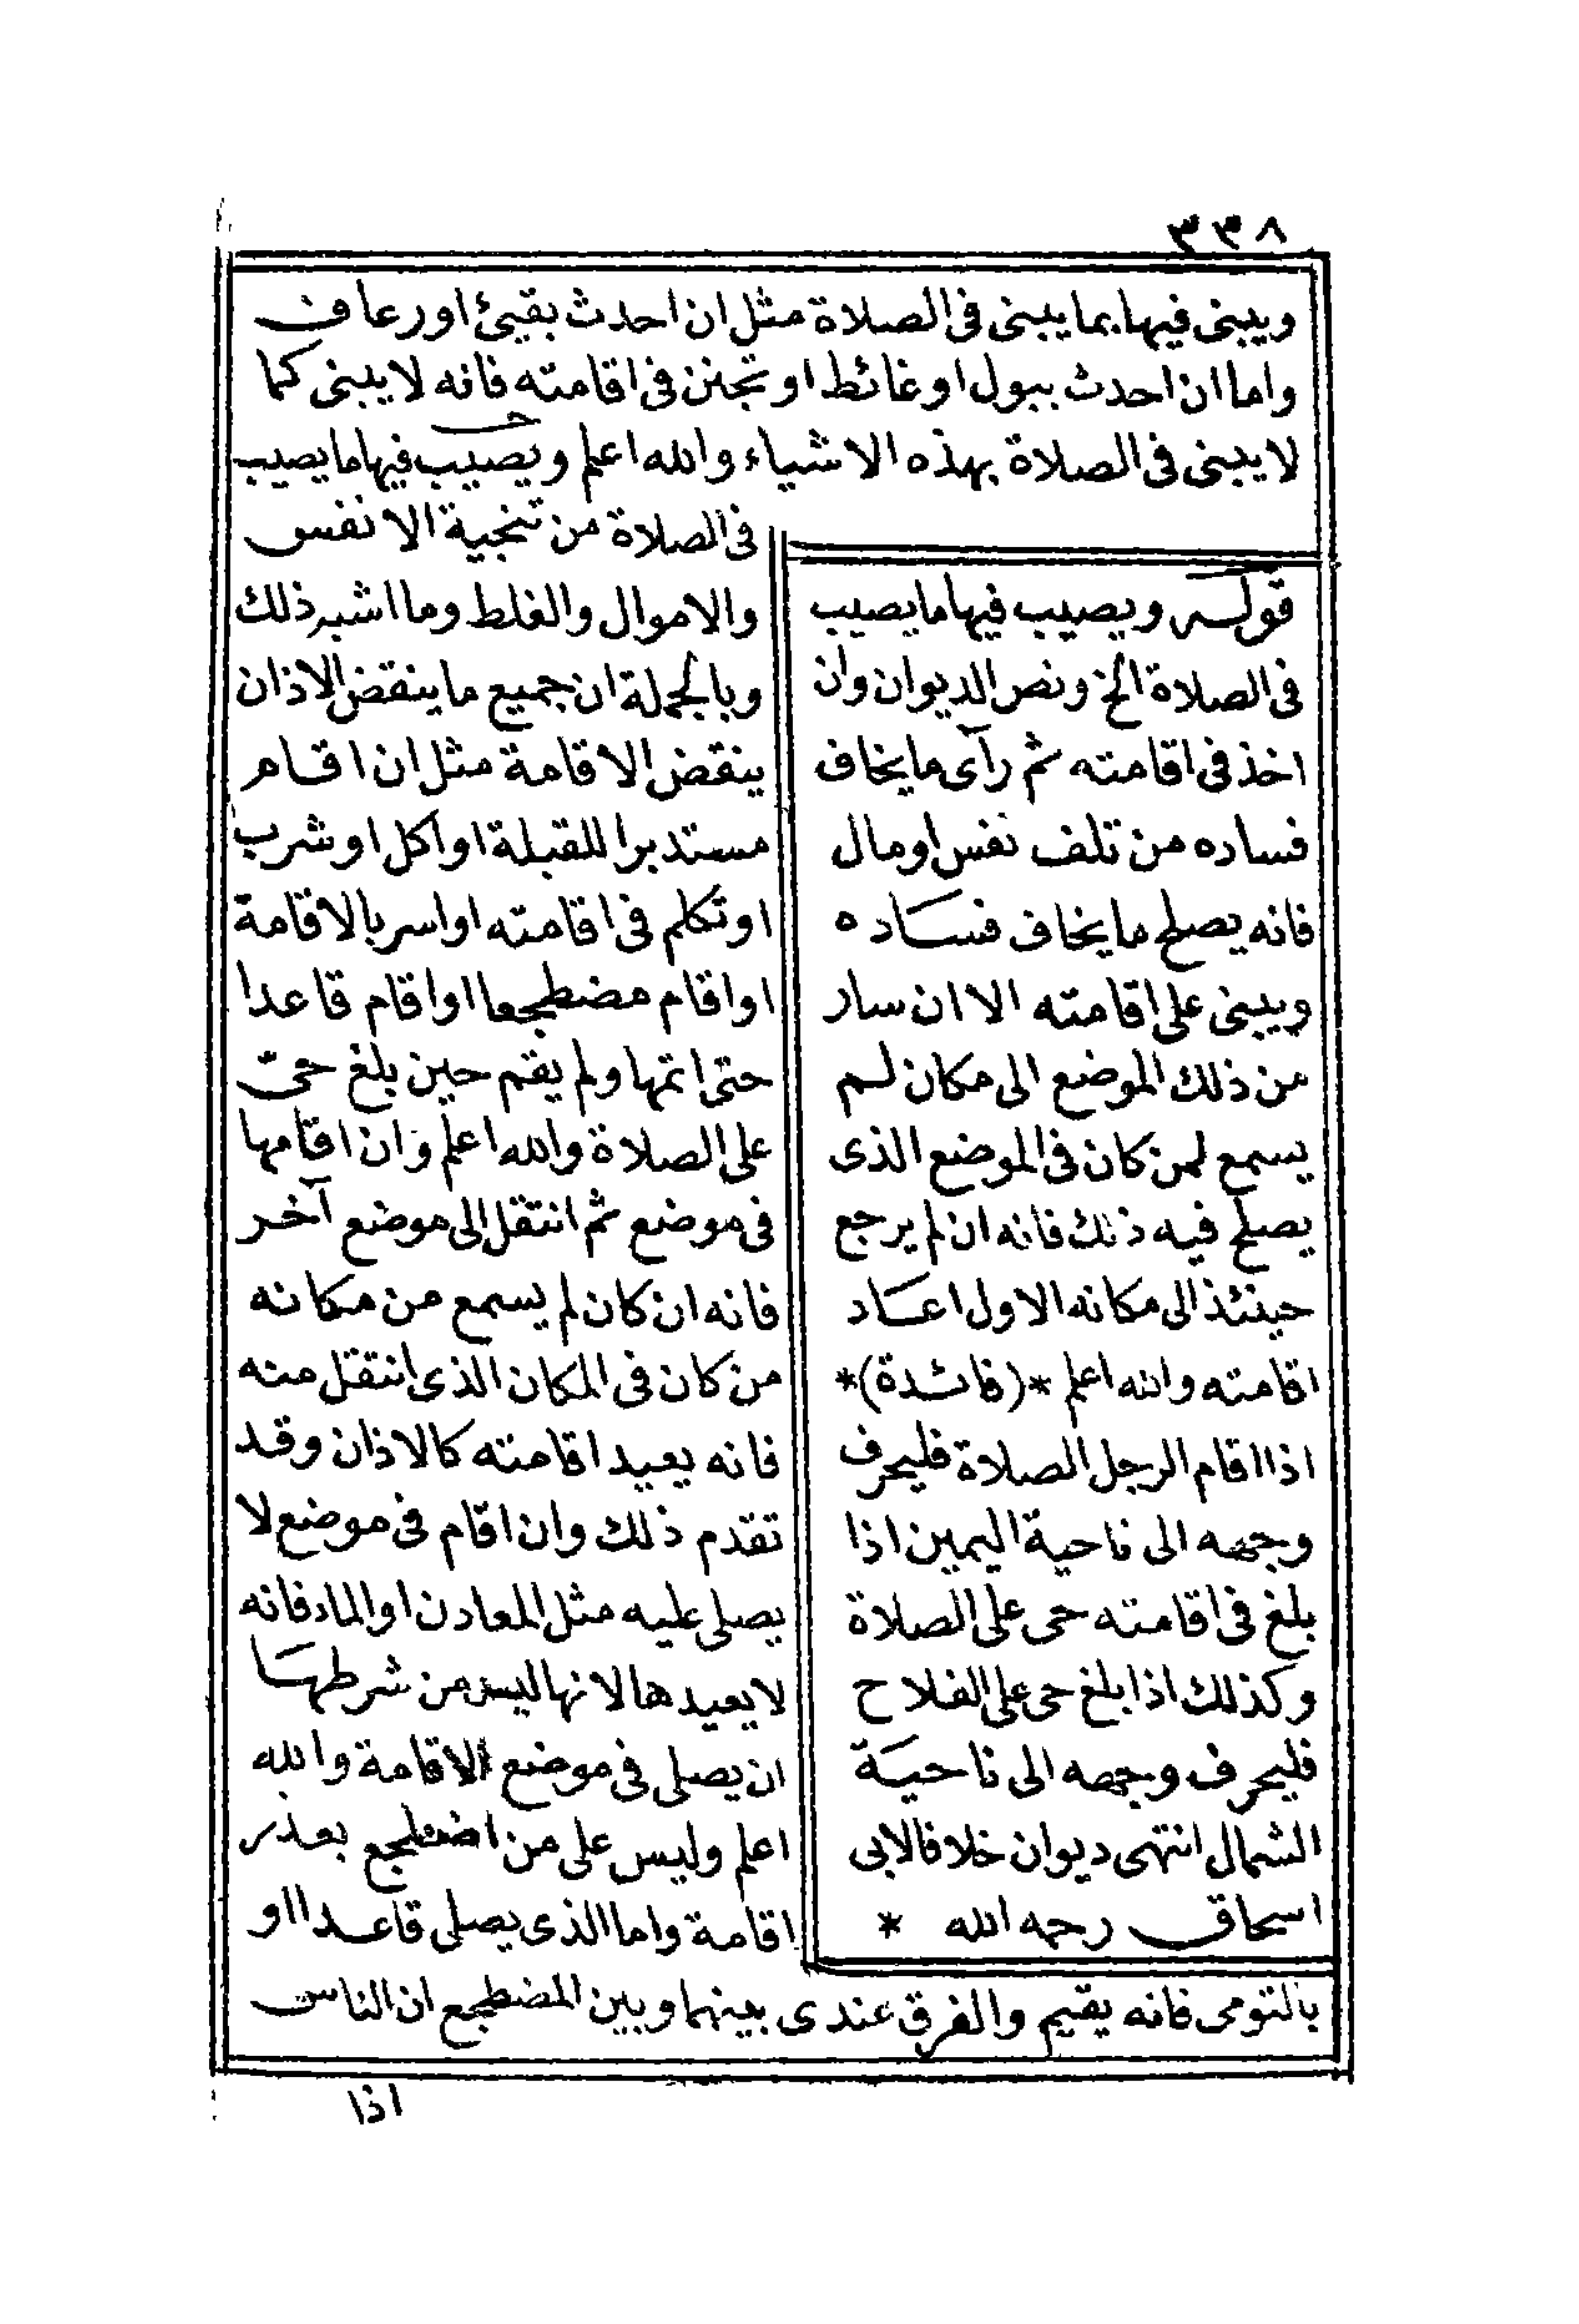 ٣٣٨
ويبنى فيها بما يبنى فى الصلاة مثل ان احدث بقيئ اورعاف
واما ان احدث ببول او غائط او تجنن فى اقامته فانه لا يبنى كما
لا يبنى فى الصلاة بهذه الاشياء والله اعلم ويصيب فيها ما يصيب
فى الصلاة من تنجية الانفس
والاموال والغلط وما اشبه ذلك
وبالجملة ان جميع ما ينقض الاذان
ينقض الاقامة مثل ان اقام
مستدبرا للقبلة او اكل او شرب
او تكلم فى اقامته او اسر بالاقامة
او اقام مضطجعا او اقام قاعدا
حتى اتمها ولم يقم حين بلغ حىّ
على الصلاة والله اعلم وان اقامها
فى موضع ثم انتقل الى موضع آخر
فانه ان كان لم يسمع من مكانه
من كان فى المكان الذى انتقل منه
فانه يعيد اقامته كالاذان وقد
تقدم ذلك وان اقام فى موضع لا
يصلى عليه مثل المعادن او الماء فانه
لا يعيدها لانها ليس من شرطها
ان يصلى فى موضع الاقامة والله
اعلم وليس على من اضطجع بعذر
اقامة واما الذى يصلى قاعدا او
بالتومى فانه يقيم والفرق عندى بينهما وبين المضطجع ان الناس
قوله ويصيب فيها ما يصيب
فى الصلاة الخ ونص الديوان وان
اخذ فى اقامته ثم رآى ما يخاف
فساده من تلف نفس او مال
فانه يصلح ما يخاف فساده
ويبنى على اقامته الا ان سار
من ذلك الموضع الى مكان لم
يسمع لمن كان فى الموضع الذى
يصلح فيه ذلك فانه ان لم يرجع
حينئذ الى مكانه الاول اعاد
اقامته والله اعلم *(فائدة)*
اذا اقام الرجل الصلاة فليحرف
وجهه الى ناحية اليمين اذا
بلغ فى اقامته حى على الصلاة
وكذلك اذا بلغ حى على الفلاح
فليحرف وجهه الى ناحية
الشمال انتهى ديوان خلافا لابى
اسحاق رحمه الله *
اذا